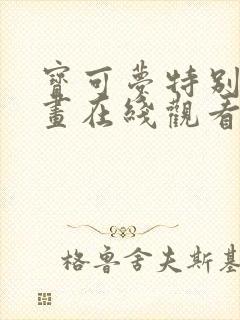 寶可夢特別
畫在綫觀看
格魯舍夫斯基